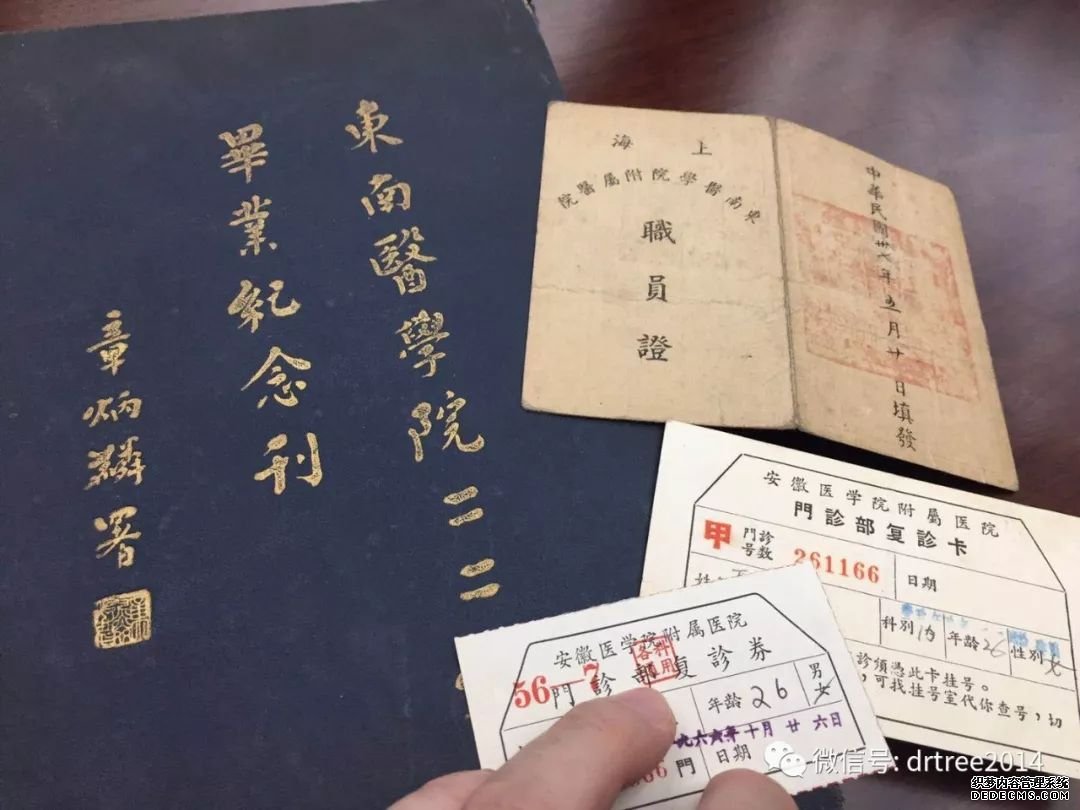 東南醫學院二二
畢業紀念刊
章炳麟署
上海
東南醫學院附屬醫院
職員證
中華民國卅六年五月廿日填發
安徽医学院附屬医院
門診部复診卡
甲
門診号数
261166
日期
科別
内
年龄
26
性别
女
診須憑此卡挂号。
,可找挂号室代你查号,切
安徽医学院附属医院
56-7
門診部复診券
各科用
年龄
26
男
女
九六六年十月廿六日
66
門
日期
微信号: drtree2014
织梦内容管理系统
DEDECMS.COM